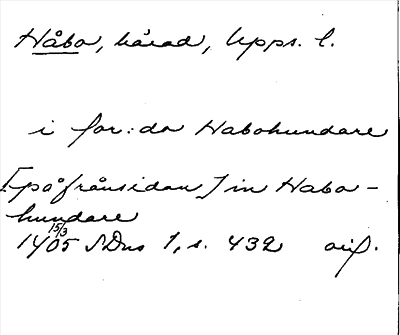 Håbo, härad, Upps. l.
i for: da Habohundare
[på frånsidan] in Habo-
hundare
1405 15/3 SDns 1, s. 432 avs.